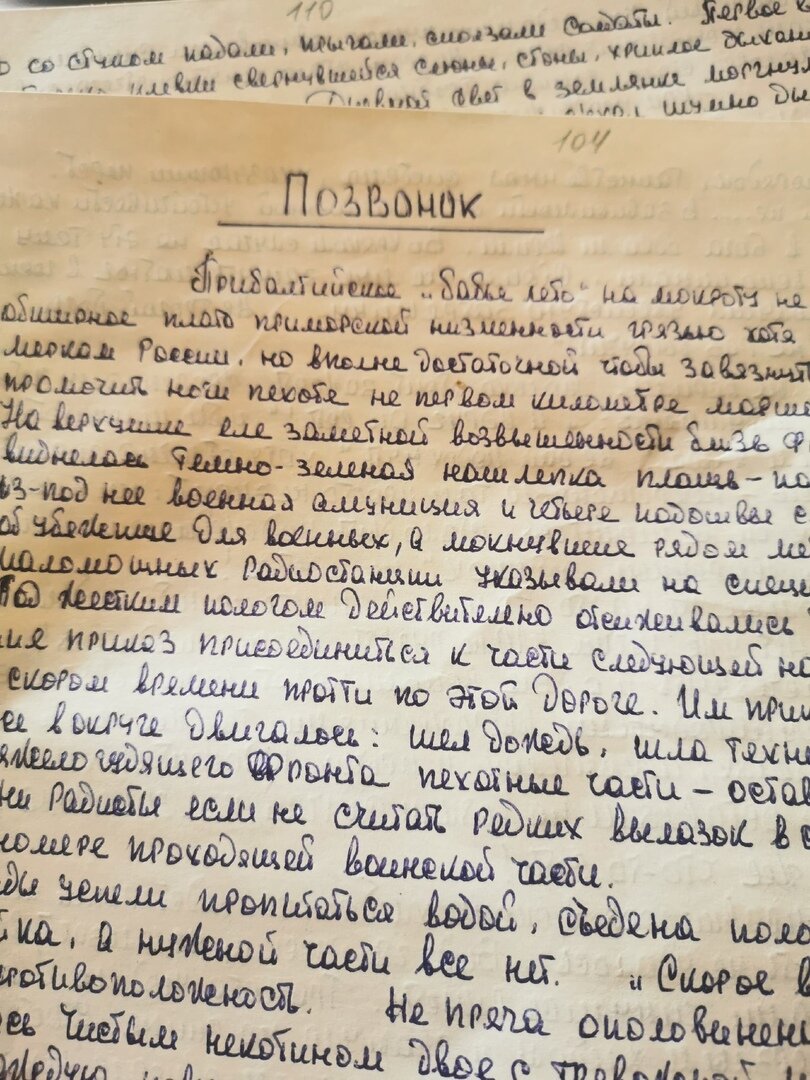 110
со стуком падали, прыгали, сползали солдаты. Первое
плевки свернувшейся слюны, стоны, хриплое
Дневной свет в землянке
шумно
104
Позвонок
Прибалтийское „бабье лето" на мокроту не
обширное плато приморской низменности грязью хотя
меркам России, но вполне достаточной чтобы завязнуть
промочить ноги пехоте не первом километре марша
На верхушке еле заметной возвышенности близь
виднелась темно-зеленая нашлепка плащ-па
из-под нее военная амуниция и четыре подошвы с
об убежище для военных, а мокнувшие рядом
маломощных радиостанции указывали на специ
Под жестким пологом действительно отсиживались
ия приказ присоединиться к части следующей на
скором времени протти по этой дороге. Им при
се вокруге двигалось: шел дождь, шла техни
яжело гудящего фронта пехотные части – остав
ни радисты если не считать редких вылазок в
номере проходящей воинской части.
успели пропитаться водой, съедена поло
йка, а нужной части все нет. „Скорое в
ротивоположность. Не пряча ополовинен
ось чистым некотином двое с тревожной